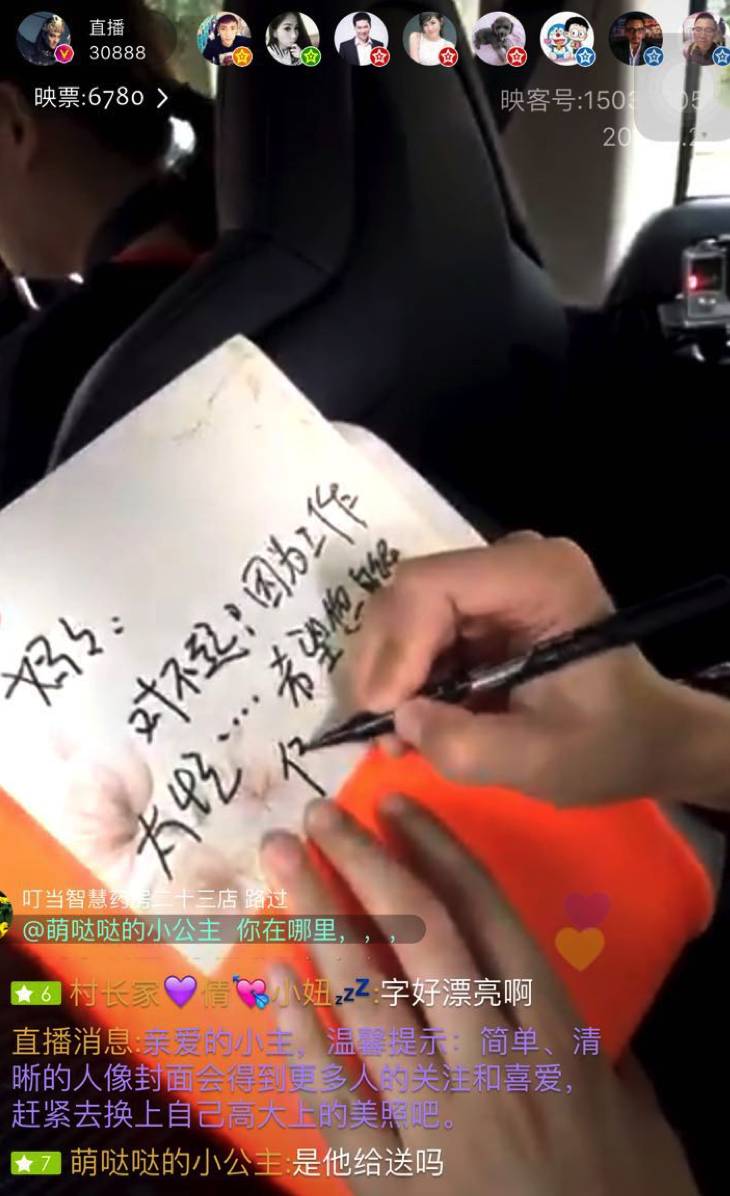 直播
30888
映票:6780
映客号:150
20
妈妈:
对不起!因为工作
太忙....希望您
叮当智慧药房二十三店 路过
@萌哒哒的小公主 你在哪里，，，
6 村长家💜倩💘小妞💤:字好漂亮啊
直播消息:亲爱的小主，温馨提示：简单、清
晰的人像封面会得到更多人的关注和喜爱，
赶紧去换上自己高大上的美照吧。
7 萌哒哒的小公主:是他给送吗